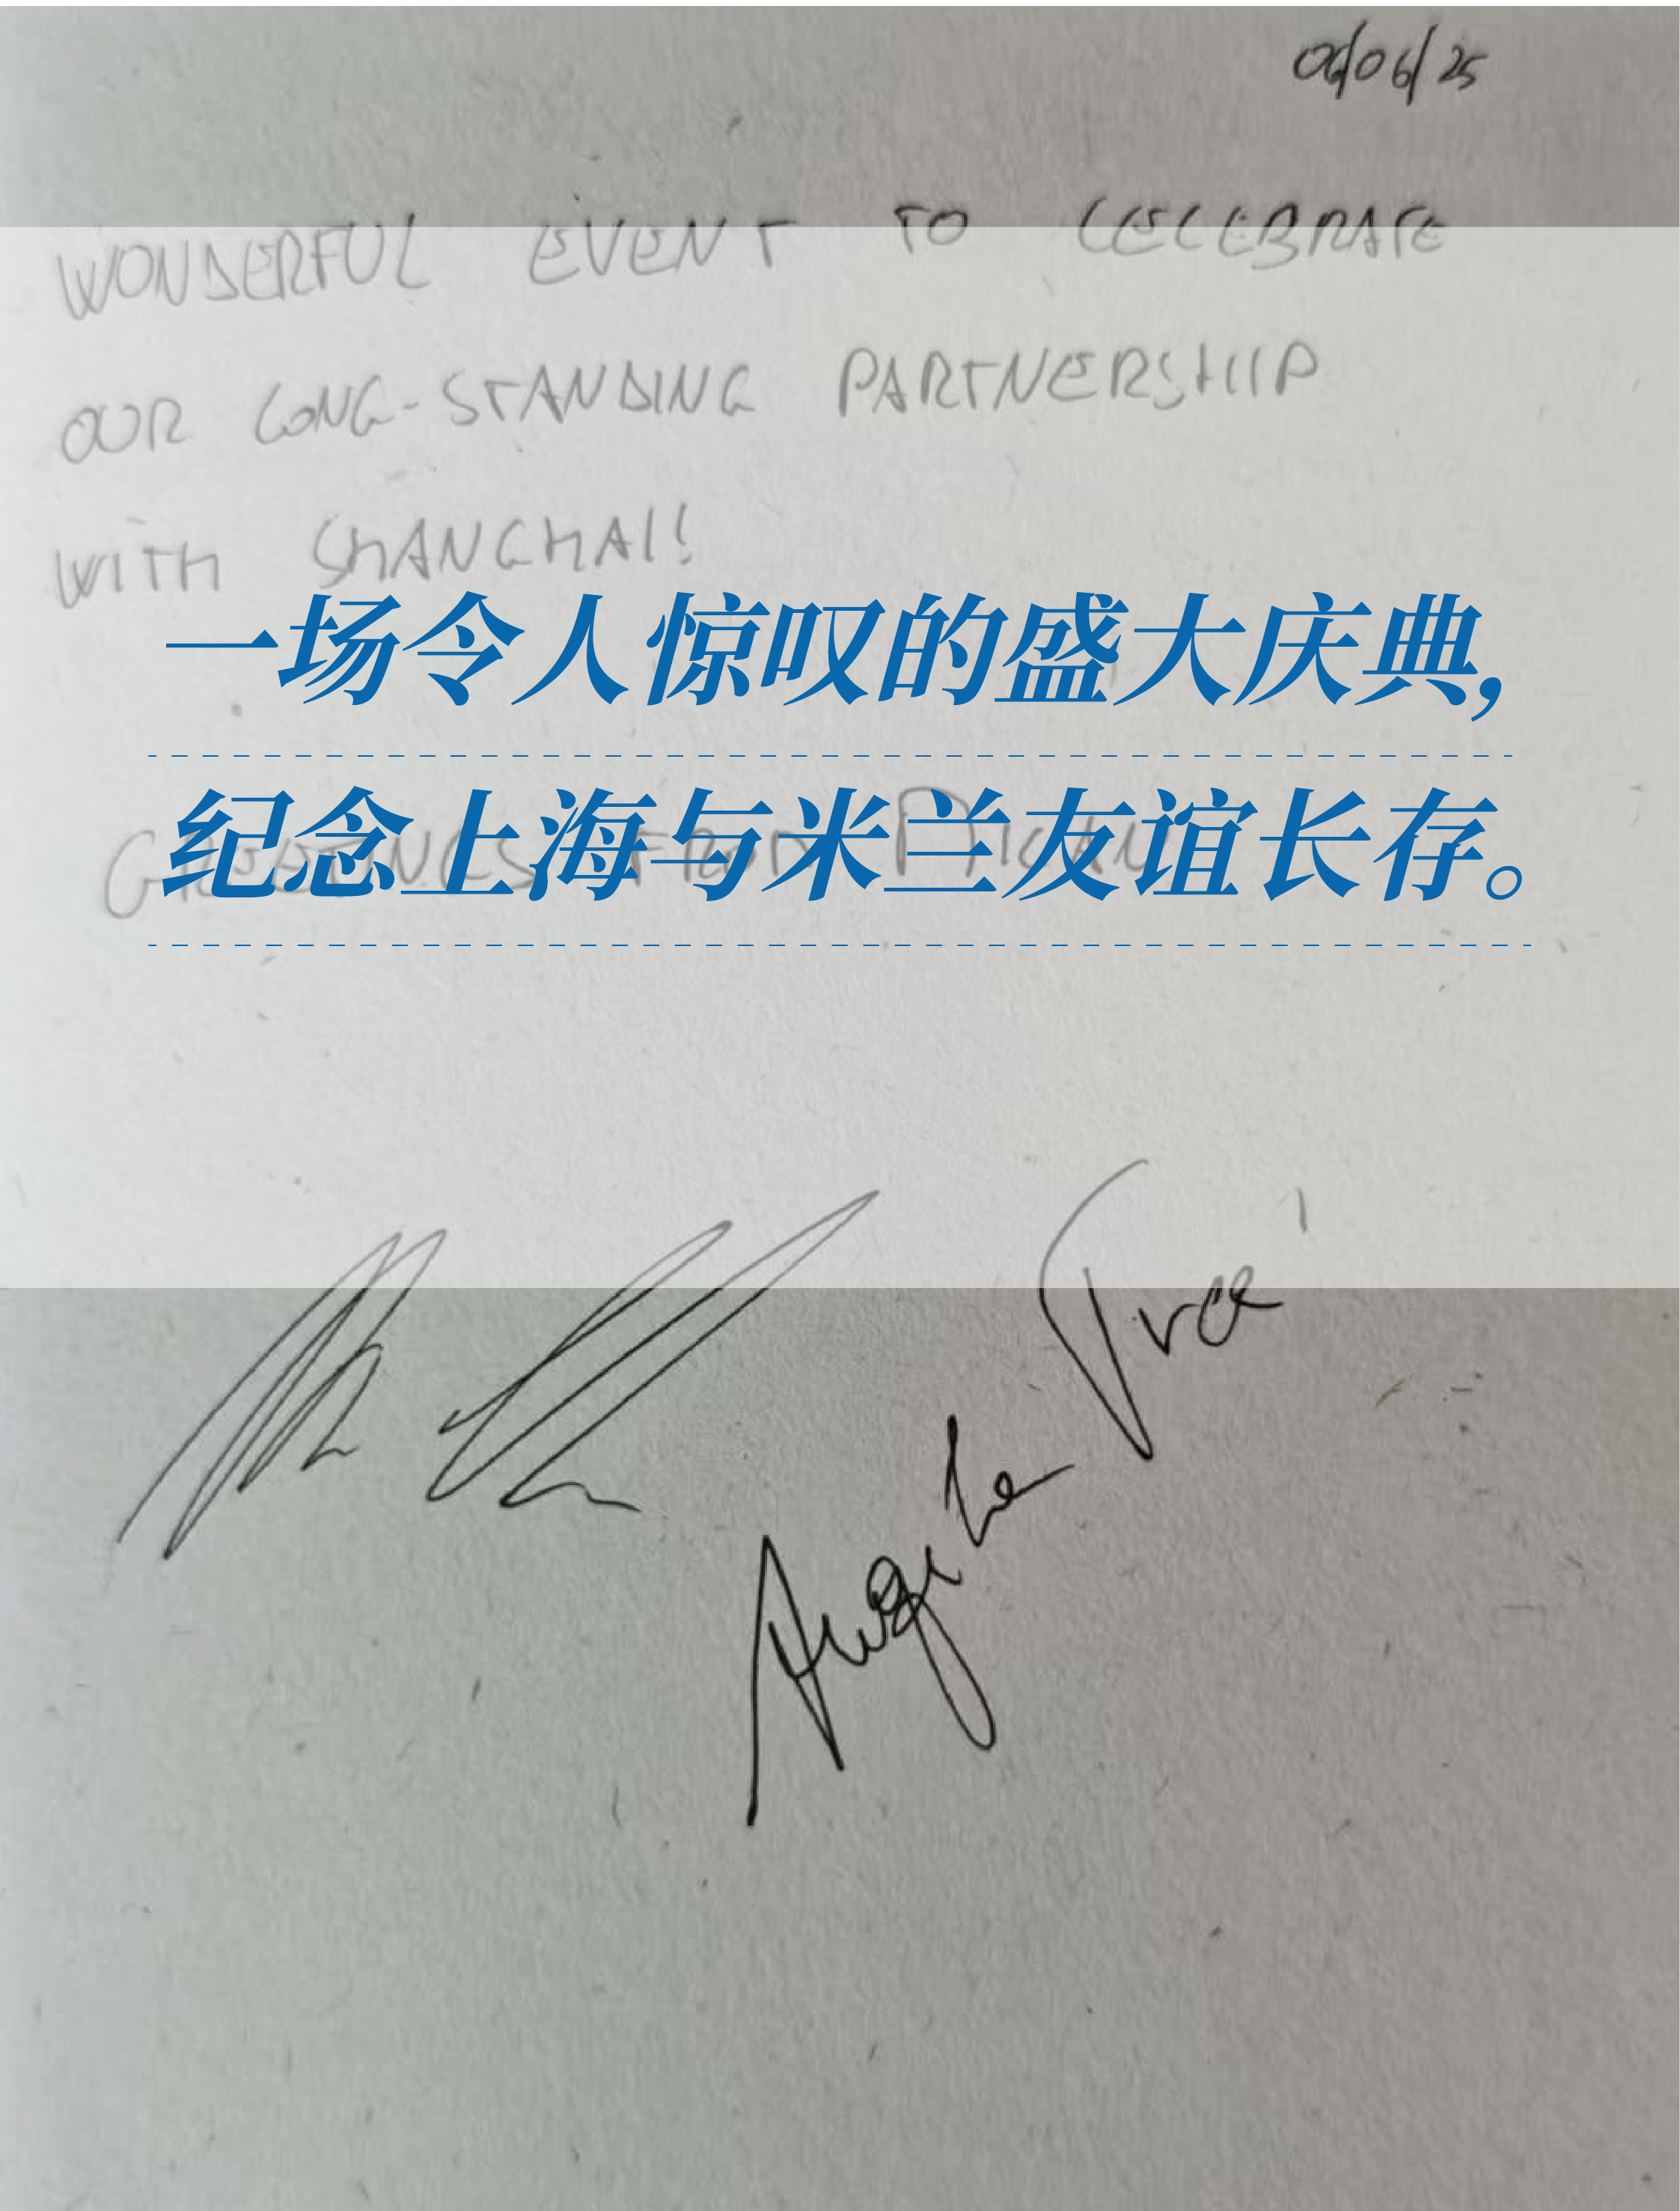 06/06/25
WONDERFUL EVENT TO CELEBRATE
OUR LONG-STANDING PARTNERSHIP
WITH SHANGHAI!
一场令人惊叹的盛大庆典，
纪念上海与米兰友谊长存。
GREETINGS FROM MILAN